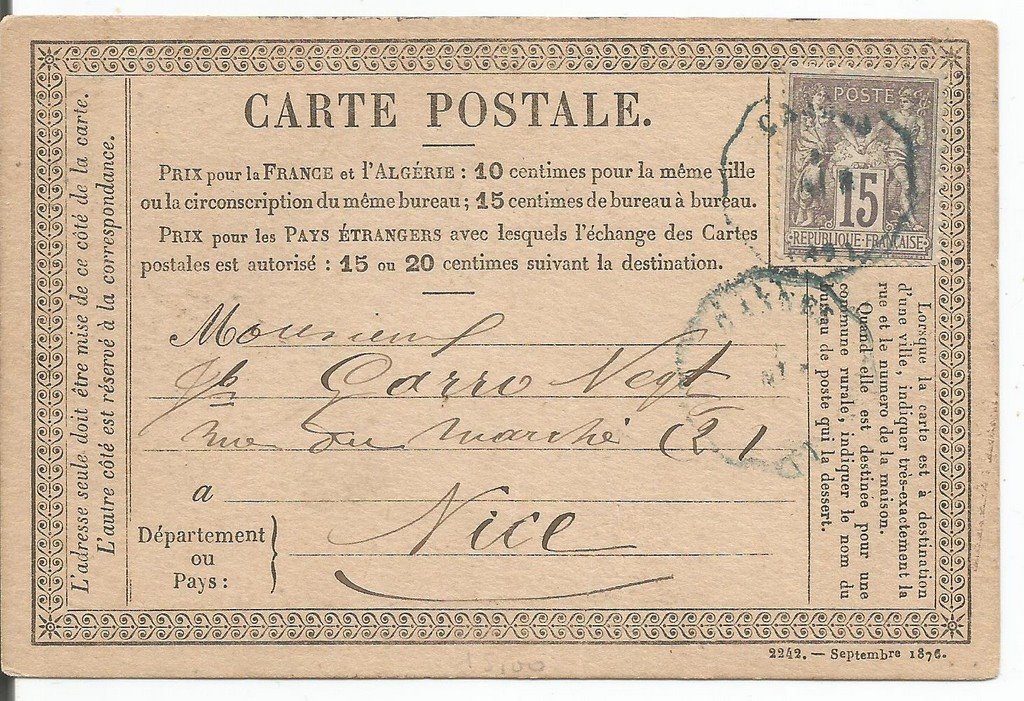 CARTE POSTALE.
PRIX pour la FRANCE et l'ALGÉRIE : 10 centimes pour la même ville
ou la circonscription du même bureau ; 15 centimes de bureau à bureau.
PRIX pour les PAYS ÉTRANGERS avec lesquels l'échange des Cartes
postales est autorisé : 15 ou 20 centimes suivant la destination.
POSTE
15
RÉPUBLIQUE FRANÇAISE
Monsieur
Jh Carro Negt
rue du Marché 21
a
Nice
Département
ou
Pays :
L'adresse seule doit être mise de ce côté de la carte.
L'autre côté est réservé à la correspondance.
Lorsque la carte est à destination
d'une ville, indiquer très-exactement la
rue et le numero de la maison.
Quand elle est destinée pour une
commune rurale, indiquer le nom du
bureau de poste qui la dessert.
2242. — Septembre 1876.